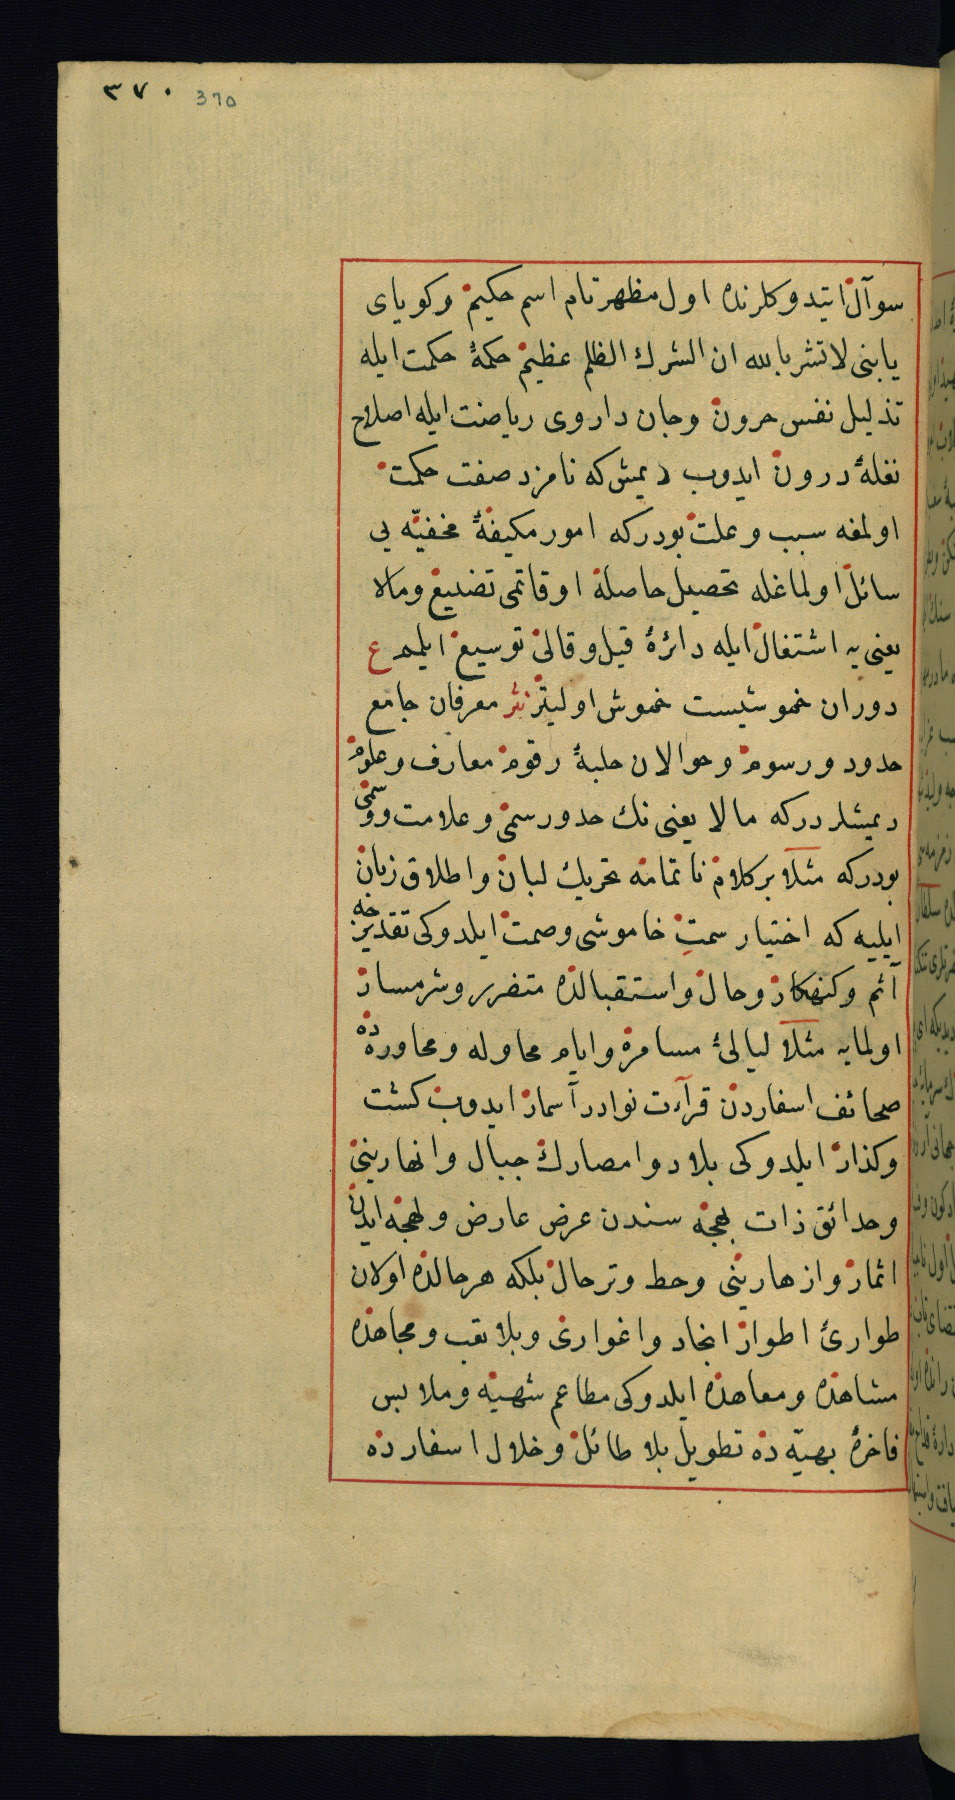 ٣٧٠ 370
سوآل ایتدوكلرنده اول مظهر تام اسم حكیم وكویای
یابنی لا تشر بالله ان الشرك الظلم عظیم حكمهٔ حكمت ایله
تذلیل نفس حرون وجان داروی ریاضت ایله اصلاح
نغلهٔ درون ایدوب دیمش كه نامزد صفت حكمت
اولمغه سبب وعلت بودركه امور مكیفهٔ مخفیّه یی
سائل اولماغله تحصیل حاصله اوقاتمی تضییع ومالا
یعنی یه اشتغال ایله دائرهٔ قیل وقالی توسیع ایلمم ع
دوران خموشیست خموش اولیتر نثر معرفان جامع
حدود ورسوم وحوالان حلبهٔ رقوم معارف وعلوم
دیمشلر دركه مالا یعنی نك حدورسمی وعلامت ووسمی
بودركه مثلا بر كلام ناتمامه تحریك لبان واطلاق زبان
ایلیه كه اختیار سمت خاموشی وصمت ایلدوكی تقدیرجه
آثم وكنهكار وحال واستقبالده متضرر وشرمسار
اولمایه مثلا لیالئ مسامره وایام محاوله ومحاورهده
صحائف اسفاردن قرآءت نوادر آسمار ایدوب كشت
وكذار ایلدوكی بلاد وامصارك جبال وانهارینی
وحدائق ذات بهجه سندن عرض عارض ولهجه ایدن
اثمار وازهارینی وحط وترحال بلكه هرحالده اولان
طوارئ اطوار انجاد واغواری وبلا تعب ومجاهده
مشاهده ومعاهده ایلدوكی مطاعم شهیّه وملابس
فاخرهٔ بهیّه ده تطویل بلا طائل وخلال اسفارده